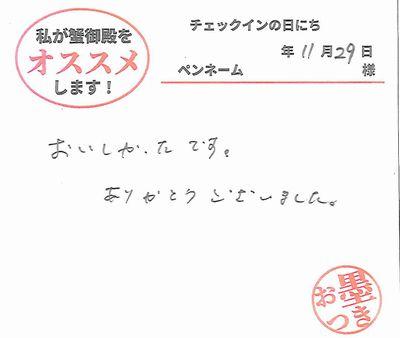 私が蟹御殿を
オススメ
します!
チェックインの日にち
年 11 月 29 日
ペンネーム 様
おいしかったです。
ありがとうございました。
お墨つき